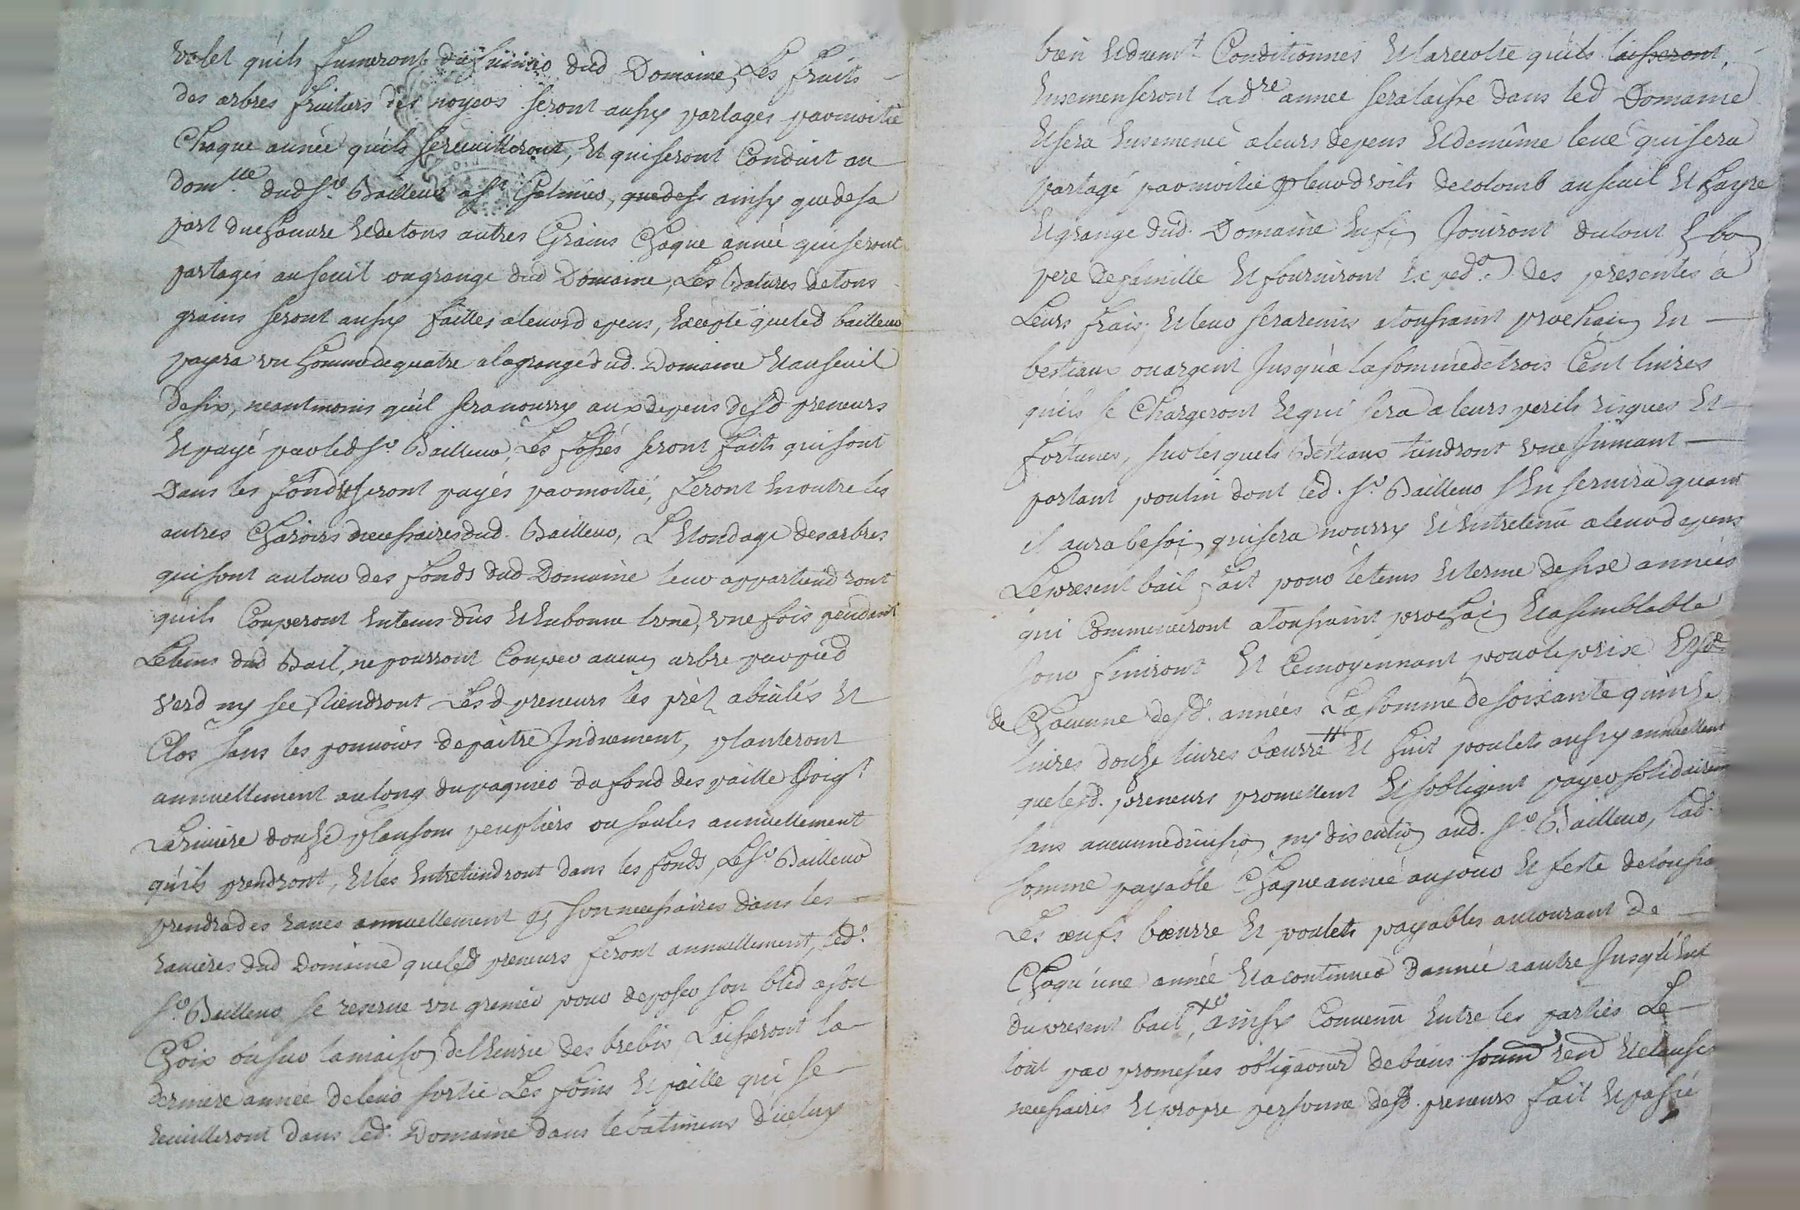 valet qu'ils fumeront du fumie dud Domaine, Les fruits
des arbres fruitiers des noyers seront aussy partages par moitié
Chaque année qu'ils se cuilliront, et qui seront Conduit au
dom.lle dud Sr. Bailleur a St Galmier, ainsy que de sa
part du chanvre et de tous autres Grains Chaque année qui seront
partagés au seuil ou grange dud Domaine, Les Batures de tous
grains seront aussy faittes a leurs depens, Excépté que led bailleur
payra un homme de quatre a la grange dud. Domaine et au seuil
de six, neantmoins qu'il sera nourry aux depens desd preneurs
et payé par led Sr. Bailleur, Les fossés seront faits qui sont
Dans les fonds et seront payés par moitié, feront en outre les
autres Charois necessaires dud. Bailleur, L'Elondage des arbres
qui sont autour des fonds dud Domaine leur appartiendront
qu'ils Couperont en tems dus et en bonne lune, une fois pendant
Le tems dud Bail, ne pourront Couper aucun arbre par pied
verd ny sec, tiendront Lesd preneurs les prés abialés et
Clos sans les pouvoirs depaitre Induement, planteront
annuellement au long du paquier du fond des paille Joig.t
La riviere douze plansons peupliers ou saules annuellement
qu'ils prendront, et les Entretiendront dans les fonds, Le Sr Bailleur
prendra des raves annuellement necessaires dans les
ravieres dud Domaine que lesd preneurs feront annuellement, led.
Sr. Bailleur se reserve un grenier pour deposer son bled a son
Choix ou sur la maison de l'heurie des brebis Laisseront la
derniere année de leur sortie Les foins et paille qui se
ceuilleront dans led. Domaine dans le batimens d'icelux
bien et dum.t Conditionnés et la recolte qu'ils laisseront,
Ensemenseront lad.re année sera laissé dans led Domaine
et sera Ensemencé a leurs depens et de même levé qui sera
partagé par moitié leurs droits de colomb au seuil et hayre
et grange dud. Domaine Enfin Jouiront du tout En bon
pere de famille et fourniront Exped.on des presentes à
Leurs frais. et leur sera remis a toussaint prochain en
bestiaux ou argent Jusqu'a la somme de trois Cent livres
qu'ils se Chargeront et qui sera a leurs perils risques et
fortunes, sur lesquels Bestiaux tiendront une Jumant
portant poulin dont led. Sr. Bailleur s'En servira quant
il aura besoin qui sera nourry et Entretenu a leurs depens
Le present bail fait pour le tems et terme de six années
qui Commenceront a toussaint prochain et a semblable
Jour finiront et Cemoyennant pour le prix
de Chacunne desd. années La somme de soixante quinze
livres douze livres beurre et huit poulets aussy annuellement
que lesd. preneurs promettent et s'obligent payer solidairem
sans aucunne division ny discution aud. Sr. Bailleur, lad.
somme payable Chaque année au jour et feste de toussa
Les œufs beurre et poulets payables au courant de
Chaqu'une année et a continuer d'année a autre Jusqu'à
du present bail, ainsy Convenu Entre les parties Le
tout par promesses obligaons de biens soumd rend et clauses
necessaires et propre personne desd. preneurs fait et passé